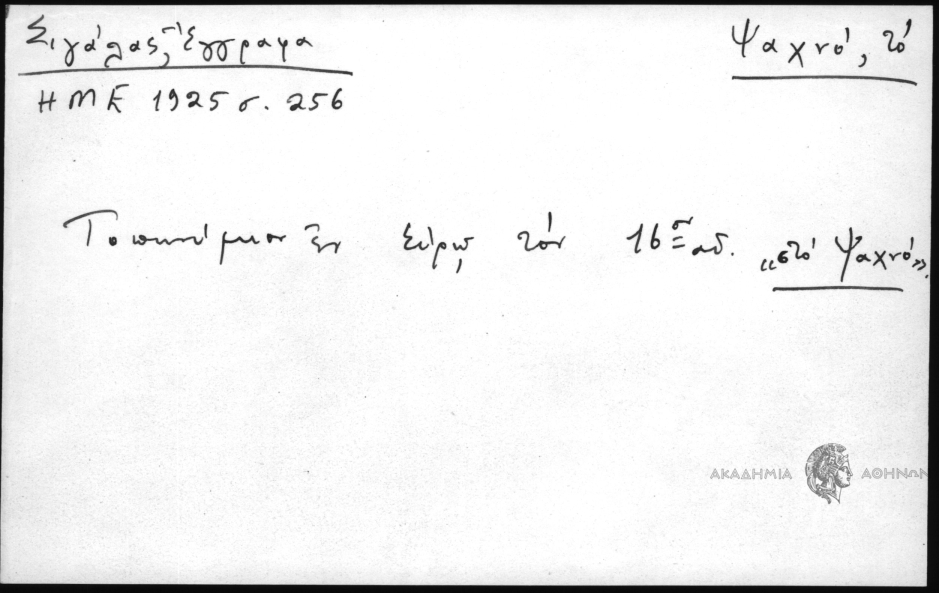 Σιγάλας, Ἔγγραφα
Ψαχνό, τό
ΗΜΕ 1925 σ. 256
Τοπωνύμιον ἐν Σύρῳ τόν 16ον αἰ. «στό Ψαχνό».
ΑΚΑΔΗΜΙΑ ΑΘΗΝΩΝ